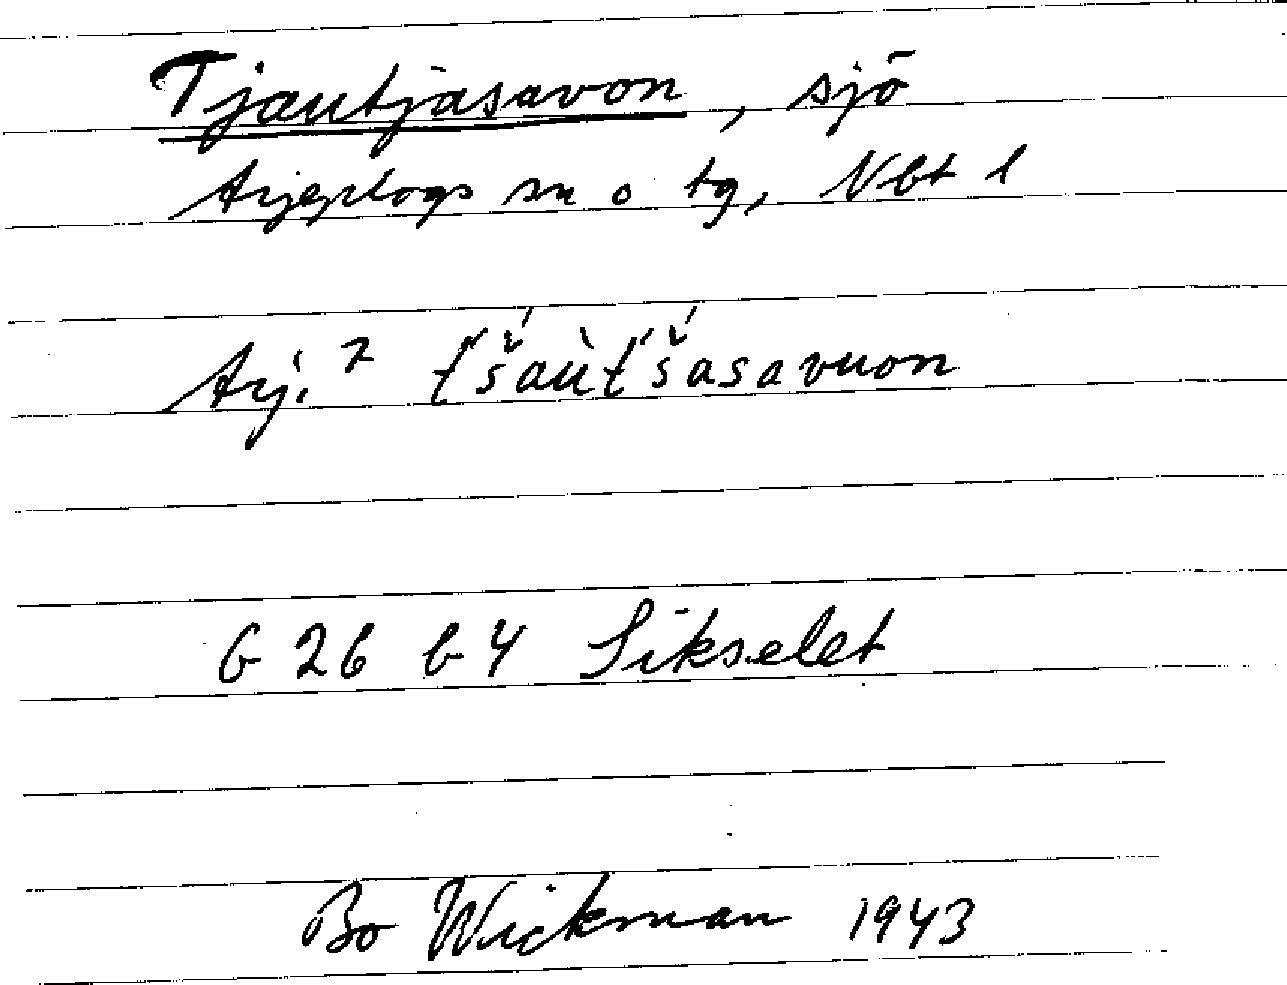 Tjautjasavon, sjö
Arjeplogs sn o tg, Nbt l
Arj. 7 t́š́aùt́š́asavuon
G 26 b 4 Sikselet
Bo Wickman 1943